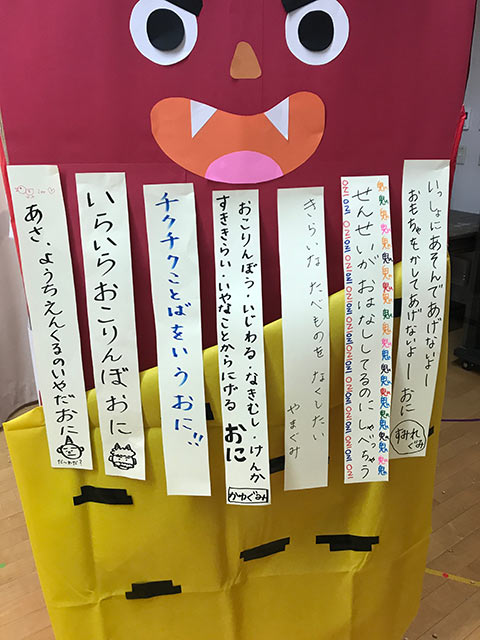 いっしょにあそんであげないよー
おもちゃをかしてあげないよー おに
すみれぐみ
せんせいが おはなししてるのに しゃべっちゃう
ONI ONI ONI ONI ONI ONI ONI ONI ONI ONI ONI ONI ONI ONI ONI ONI ONI ONI ONI!
きらいな たべものを なくしたい
やまぐみ
おこりんぼう・いじわる・なきむし・けんか
すききらい・いやなことからにげる おに
かわぐみ
チクチクことばをいうおに!!
いらいらおこりんぼおに
あさ、ようちえんくるのいやだおに